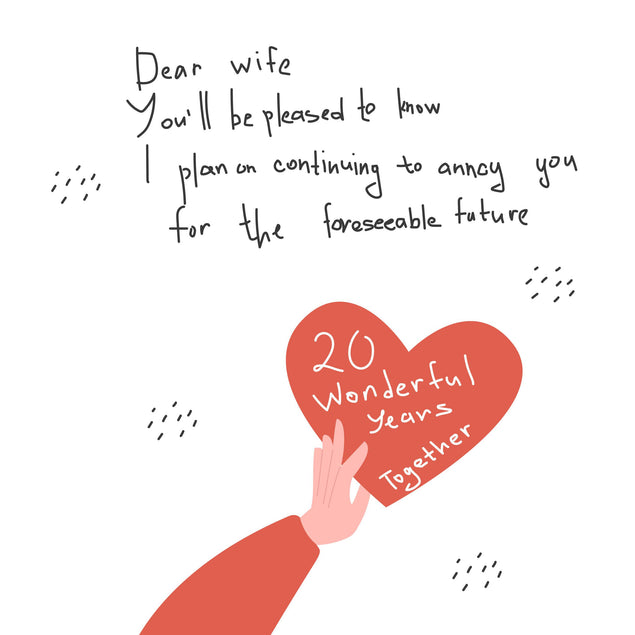 Dear wife
You'll be pleased to know
I plan on continuing to annoy you
for the foreseeable future
20
Wonderful
Years
Together